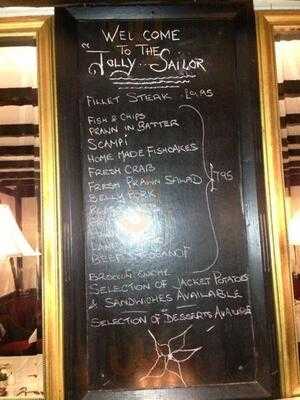 WELCOME
TO THE
Jolly Sailor
FILLET STEAK £9.95
FISH & CHIPS
PRAWN IN BATTER
SCAMPI
HOME MADE FISHCAKES
FRESH CRAB
FRESH PRAWN SALAD
£7.95
BELLY PORK
BEEF
SELECTION OF JACKET POTATOES
& SANDWICHES AVAILABLE
SELECTION OF DESSERTS AVAILABLE